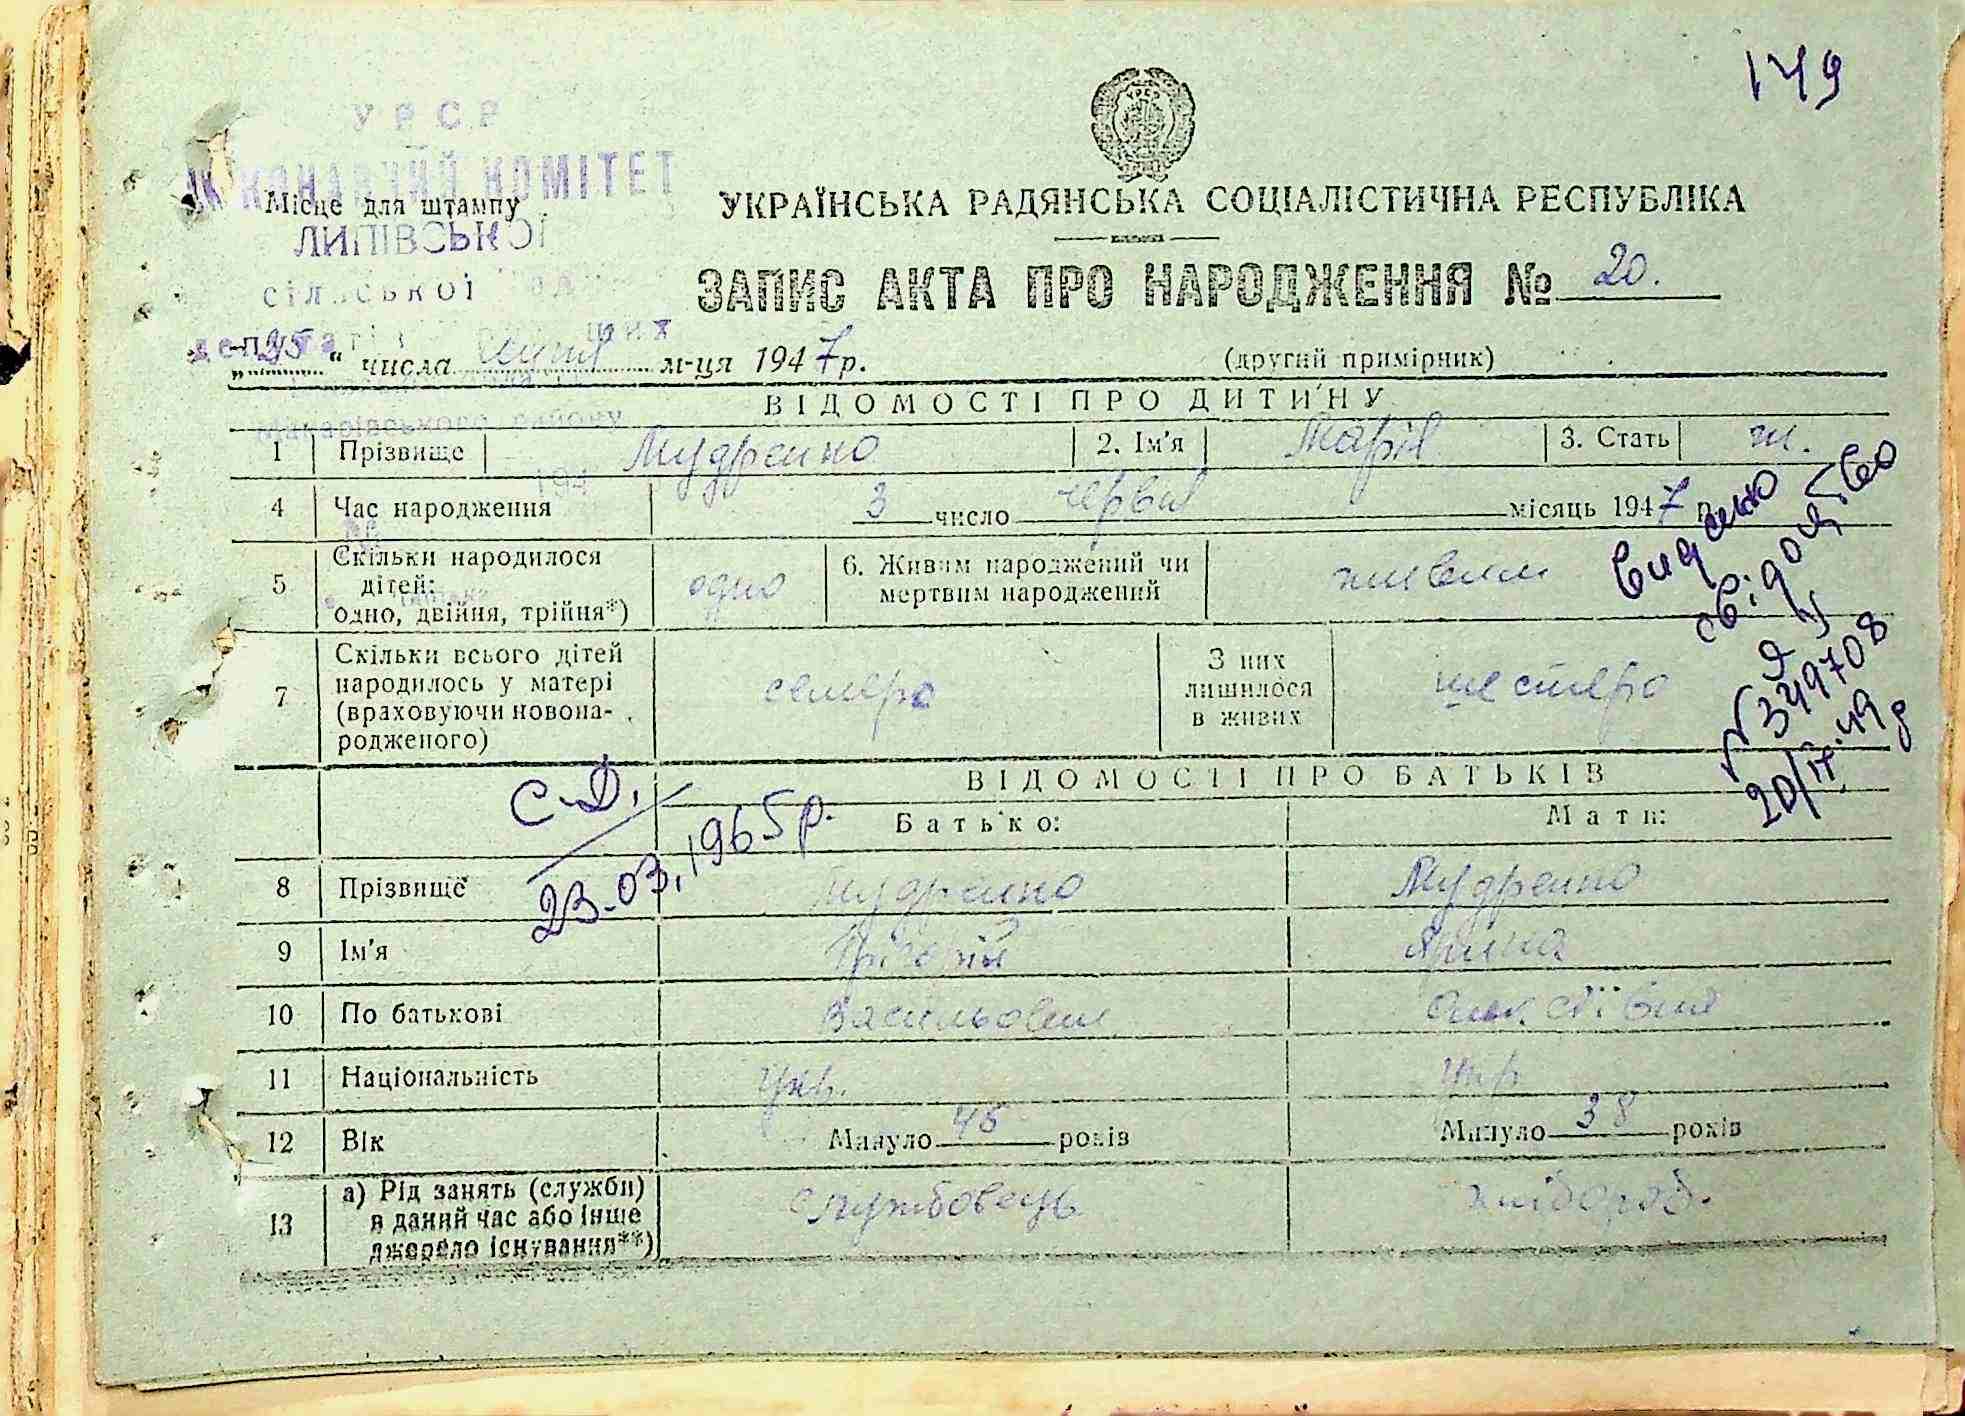 149
УРСР
ВИКОНАВЧИЙ КОМІТЕТ
Місце для штампу
ЛИПІВСЬКОЇ
сільської Ради
депутатів
Макарівського району
194
УКРАЇНСЬКА РАДЯНСЬКА СОЦІАЛІСТИЧНА РЕСПУБЛІКА
ЗАПИС АКТА ПРО НАРОДЖЕННЯ № 20.
„25“ числа м-ця 1947 р.
(другий примірник)
ВІДОМОСТІ ПРО ДИТИНУ
1 Прізвище Мудренко 2. Ім'я Марія 3. Стать ж.
4 Час народження 3 число червня місяць 1947 р.
5 Скільки народилося
дітей:
одно, двійня, трійня*)
одно
6. Живим народжений чи
мертвим народжений
живим
Видано
свідоцтво
Я Ю
№ 349708
20/IV.49 р
7 Скільки всього дітей
народилось у матері
(враховуючи новона-
родженого)
семеро
З них
лишилося
в живих
шестеро
С.Д.
23.03.1965р.
ВІДОМОСТІ ПРО БАТЬКІВ
Батько: Мати:
8 Прізвище Мудренко Мудренко
9 Ім'я Григорій Ярина
10 По батькові Васильович Олексіївна
11 Національність Укр. Укр
12 Вік Минуло 45 років Минуло 38 років
13 а) Рід занять (служби)
в даний час або інше
джерело існування**)
службовець хлібороб.